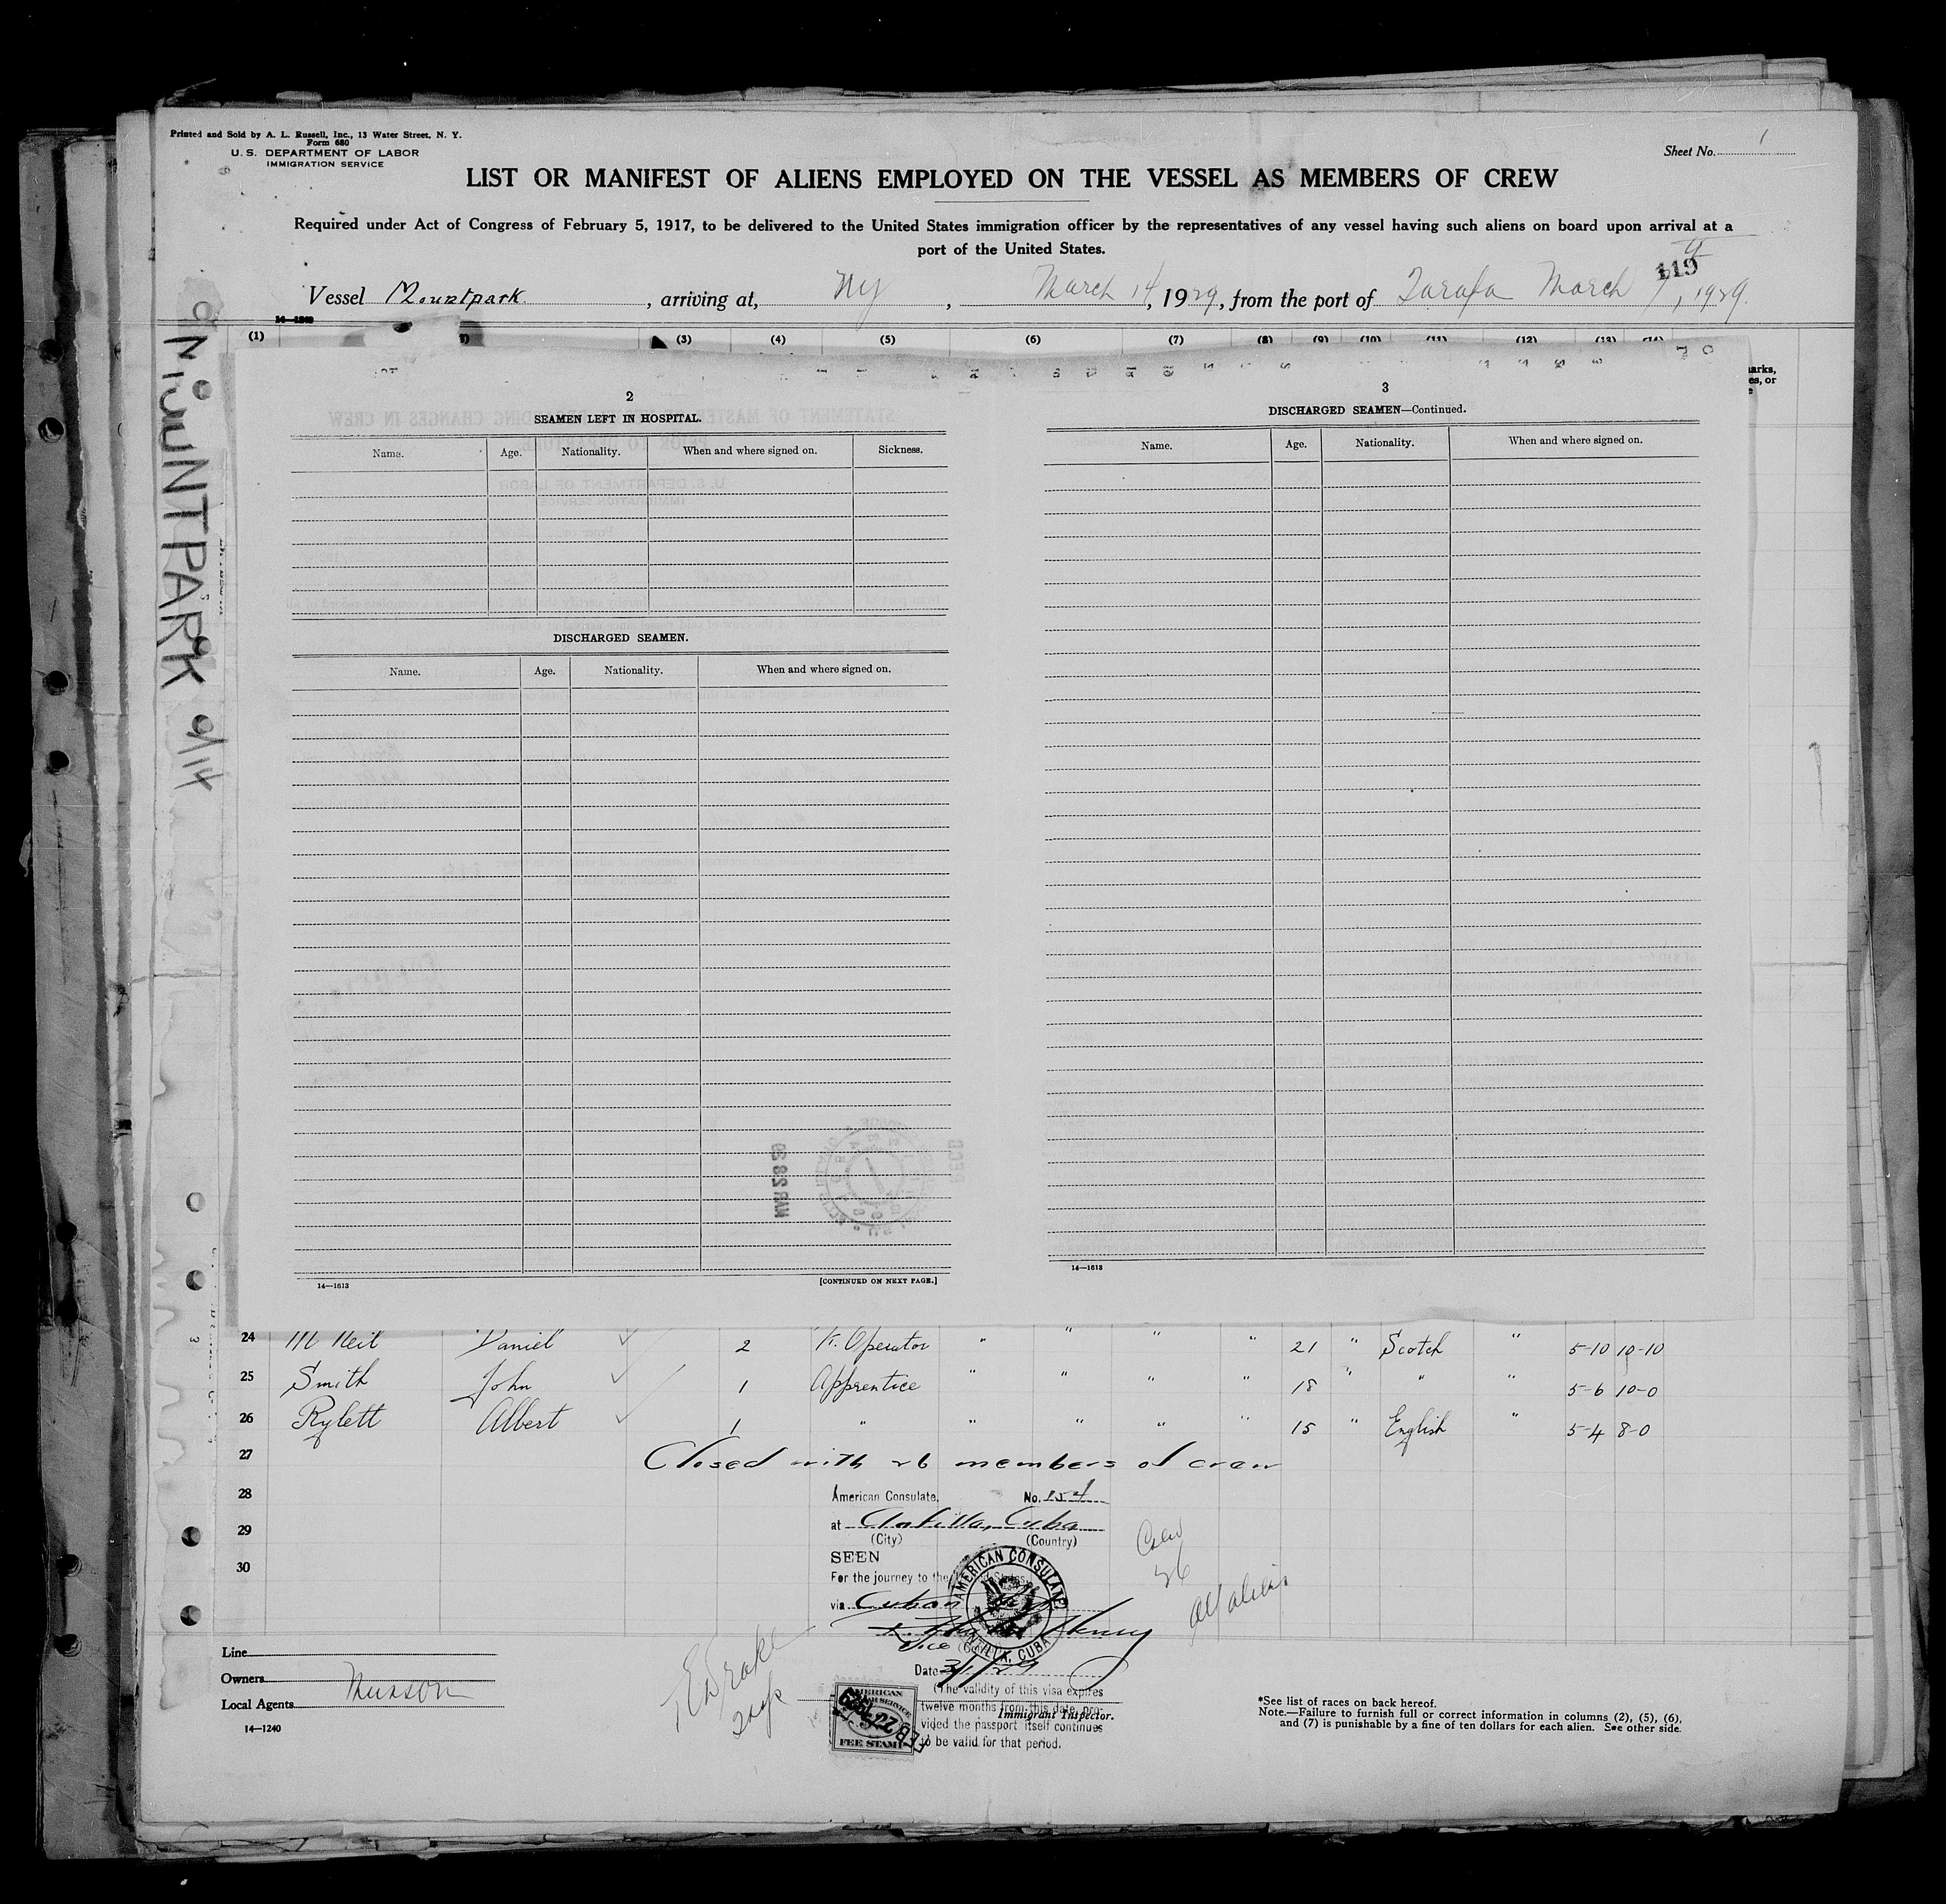 Printed and Sold by A. L. Russell, Inc., 13 Water Street, N. Y.
Form 680
U. S. DEPARTMENT OF LABOR
IMMIGRATION SERVICE
Sheet No. 1
LIST OR MANIFEST OF ALIENS EMPLOYED ON THE VESSEL AS MEMBERS OF CREW
Required under Act of Congress of February 5, 1917, to be delivered to the United States immigration officer by the representatives of any vessel having such aliens on board upon arrival at a
port of the United States.
119
Vessel Mountpark, arriving at, NY, March 14, 1929, from the port of Tarafa March 7, 1929.
14—1240
(1) (3) (4) (5) (6) (7) (8) (9) (10) (11) (12) (13) (14)
MOUNTPARK 9/14
2
SEAMEN LEFT IN HOSPITAL.
Name. Age. Nationality. When and where signed on. Sickness.
DISCHARGED SEAMEN.
Name. Age. Nationality. When and where signed on.
MAR 28 29
14—1613 [CONTINUED ON NEXT PAGE.]
3
DISCHARGED SEAMEN—Continued.
Name. Age. Nationality. When and where signed on.
14—1613
24 McNeil Daniel 2 W. Operator " " " " 21 " Scotch " 5-10 10-10
25 Smith John 1 Apprentice " " " " 18 " " " 5-6 10-0
26 Rylett Albert 1 " " " " " 15 " English " 5-4 8-0
27 Closed with 26 members of crew
28
29
30
American Consulate, No. 254
at Antilla, Cuba
(City) (Country)
SEEN
For the journey to the United States
via Cuban
Henry
Vice
AMERICAN CONSULATE
ANTILLA, CUBA
Date 3/1/29
(The validity of this visa expires
twelve months from this date, pro-
vided the passport itself continues
to be valid for that period.
Immigrant Inspector.
AMERICAN
FEE STAMP
FEB 22 1929
Crew
26
all aliens
E Drake
Insp
Line
Owners
Local Agents Munson
14—1240
*See list of races on back hereof.
Note.—Failure to furnish full or correct information in columns (2), (5), (6),
and (7) is punishable by a fine of ten dollars for each alien. See other side.